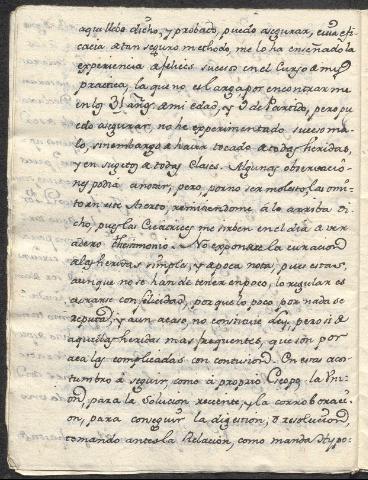 aqui llebo dicho, y probado, puedo asegurar, cuia efi-
cacia de tan seguro methodo, me lo ha enseñado la
experiencia de felices sucesos en el Curso de mi
practica, la que no es larga por encontrarme
en los 31 años de mi edad, y 3 de Partido, pero pu-
edo asegurar, no he experimentado suceso ma-
lo, sin embargo de havér tocado de todas heridas,
y en sugetos de todas Clases. Algunas observacio-
nes podia anotár, pero, por no ser molesto, las omi-
to en este Texto, remitiendome, á lo arriba di-
cho, pues las Cicatrices me sirben en el dia de ver-
dadero thestimonio. No expondre la curacion
de las heridas simples, y de poca nota, pues estas,
aunque no se han de tener en poco, lo regular es
curarse con felicidad, porque lo poco, por nada se
reputa, y aun acaso, no constituie Ley, pero si de
aquellas heridas mas frequentes, que son por
aca las complicadas con contusion. En estas acos-
tumbro á seguir, como á proprio la Uni-
on, para la solucion reciente, y la corroboraci-
on, para conseguir la digestion, ó resolucion,
tomando antes la Relación, como manda Hypo-